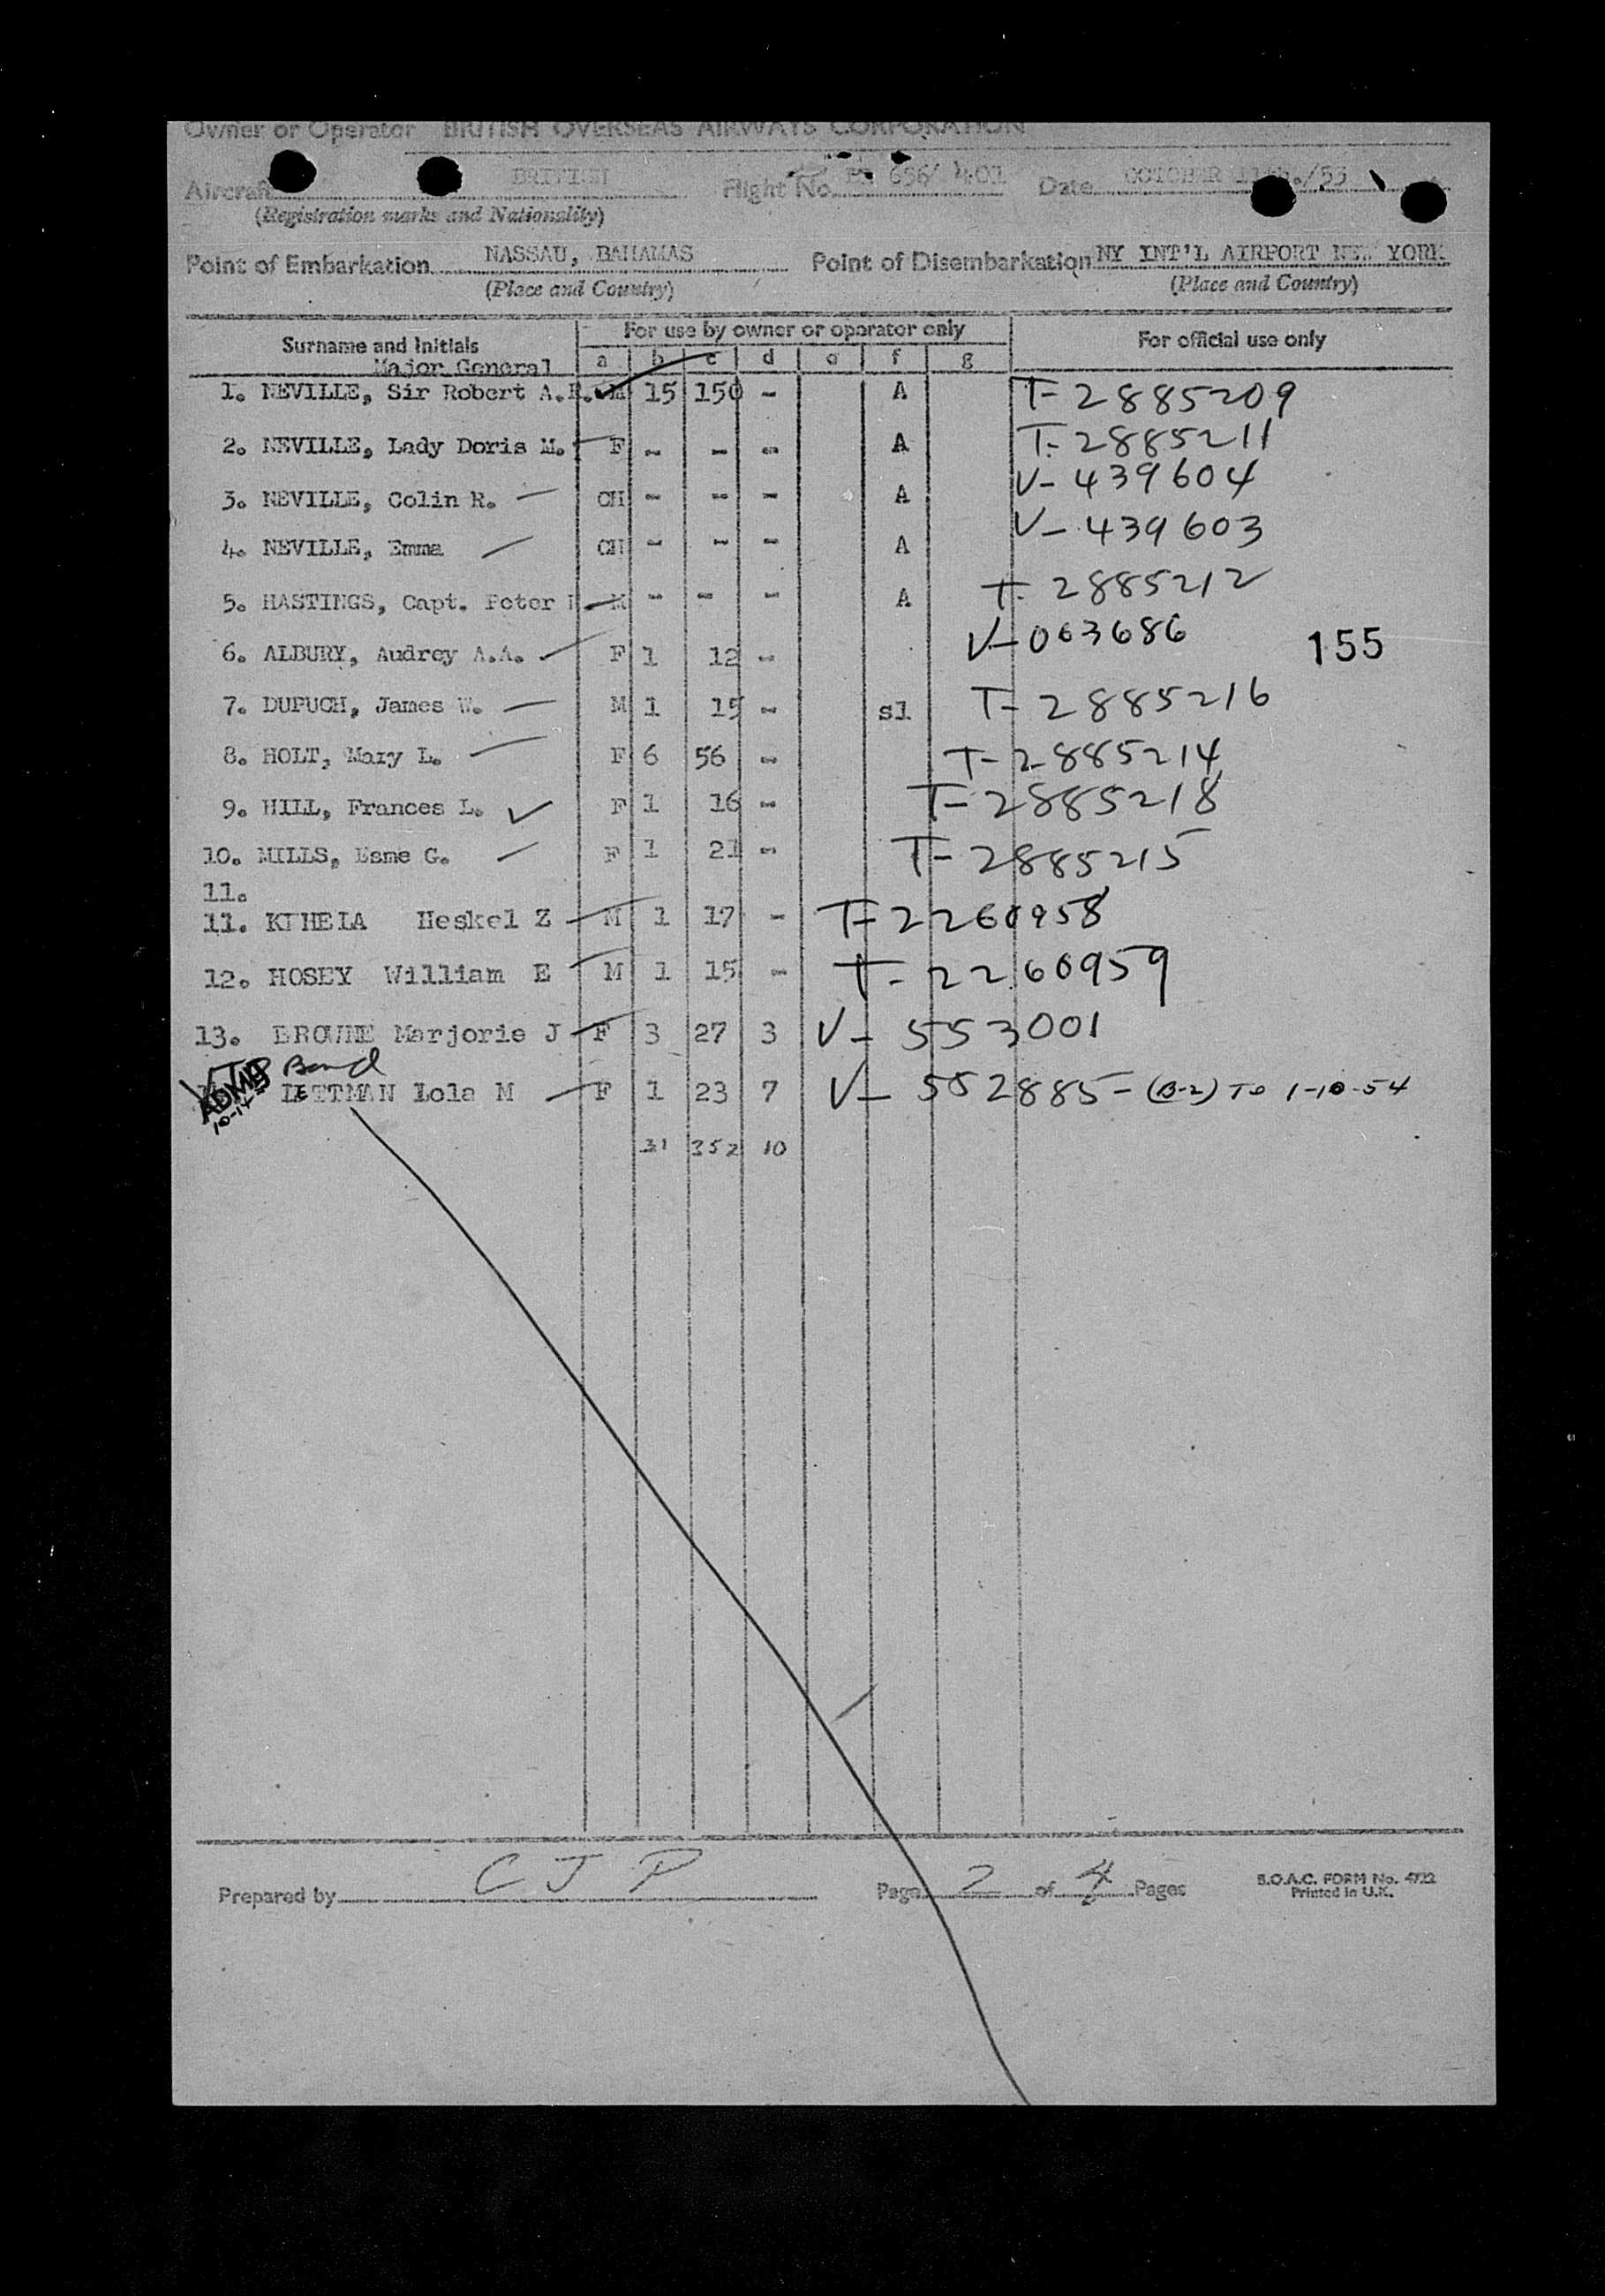 Owner or Operator BRITISH OVERSEAS AIRWAYS CORPORATION
Aircraft BRITISH Flight No. 656/ 401 Date OCTOBER 11th./53
(Registration marks and Nationality)
Point of Embarkation NASSAU, BAHAMAS Point of Disembarkation NY INT'L AIRPORT NEW YORK
(Place and Country) (Place and Country)
Surname and Initials For use by owner or operator only For official use only
Major General a b c d e f g
1. NEVILLE, Sir Robert A.R. M 15 150 - A T-2885209
2. NEVILLE, Lady Doris M. F - - - A T-2885211
3. NEVILLE, Colin R. CH - - - A V-439604
4. NEVILLE, Emma CH - - - A V-439603
5. HASTINGS, Capt. Peter M - - - A T-2885212
6. ALBURY, Audrey A.A. F 1 12 - V-063686 155
7. DUPUCH, James W. M 1 15 - s1 T-2885216
8. HOLT, Mary L. F 6 56 - T-2885214
9. HILL, Frances L. F 1 16 - T-2885218
10. MILLS, Esme G. F 1 21 - T-2885215
11.
11. Heskel Z M 1 17 - T-2260958
12. HOSEY William E M 1 15 - T-2260959
13. BROWNE Marjorie J F 3 27 3 V-553001
Bond
LETTMAN Lola M F 1 23 7 V-552885-(B-2) TO 1-10-54
31 352 10
Prepared by C J P Page 2 of 4 Pages
B.O.A.C. FORM No. 4722
Printed in U.K.